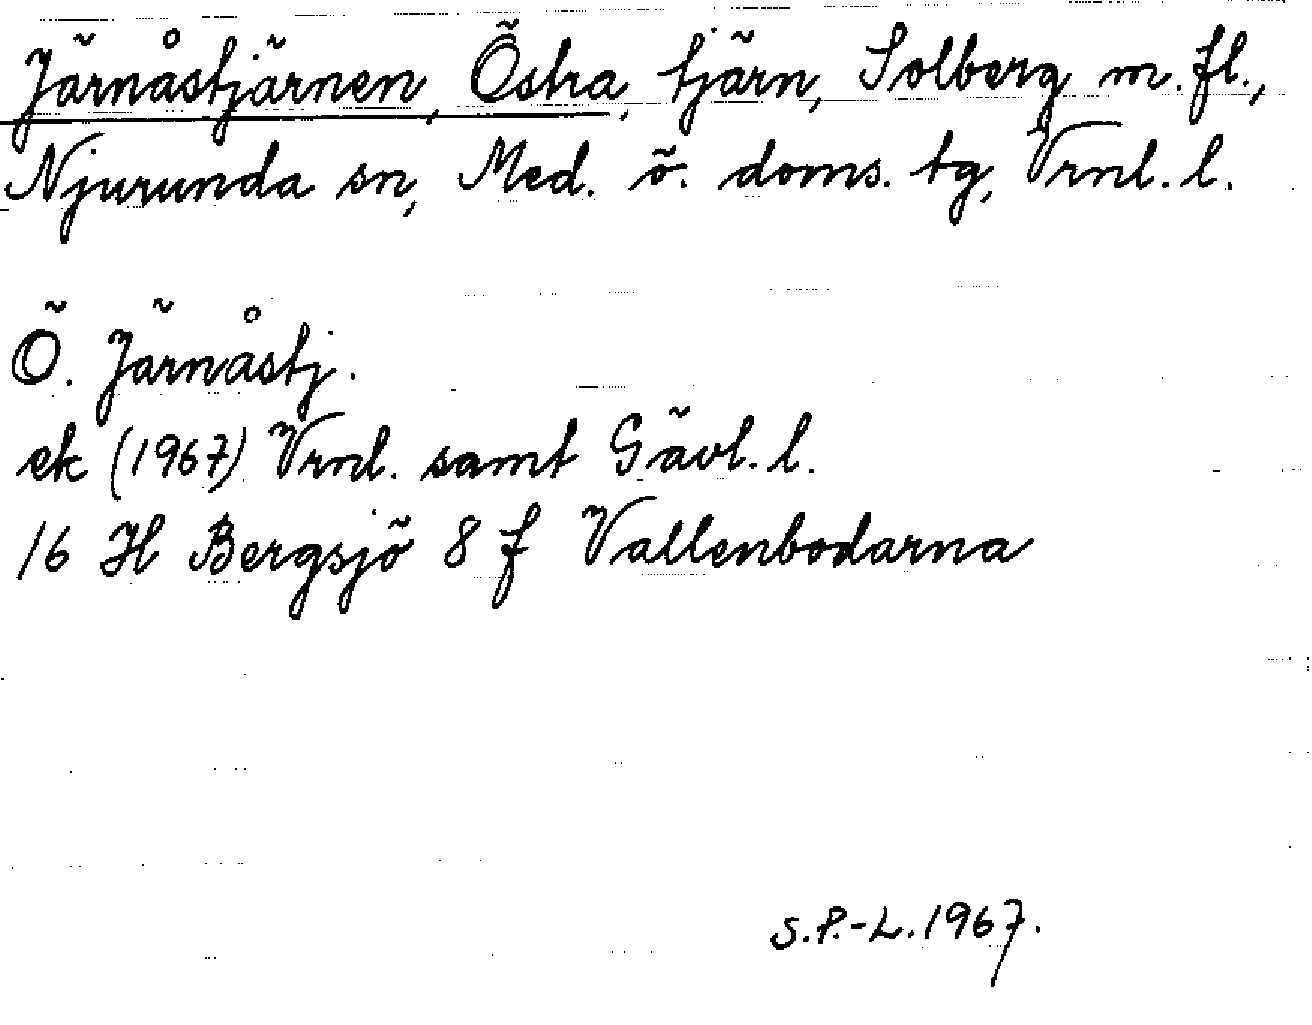 Järnåstjärnen, Östra, tjärn, Solberg m.fl.,
Njurunda sn, Med. ö. doms. tg, Vrnl. l.
Ö. Järnåstj.
ek (1967) Vrnl. samt Gävl. l.
16 H Bergsjö 8 f Vallenbodarna
S.P.-L. 1967.